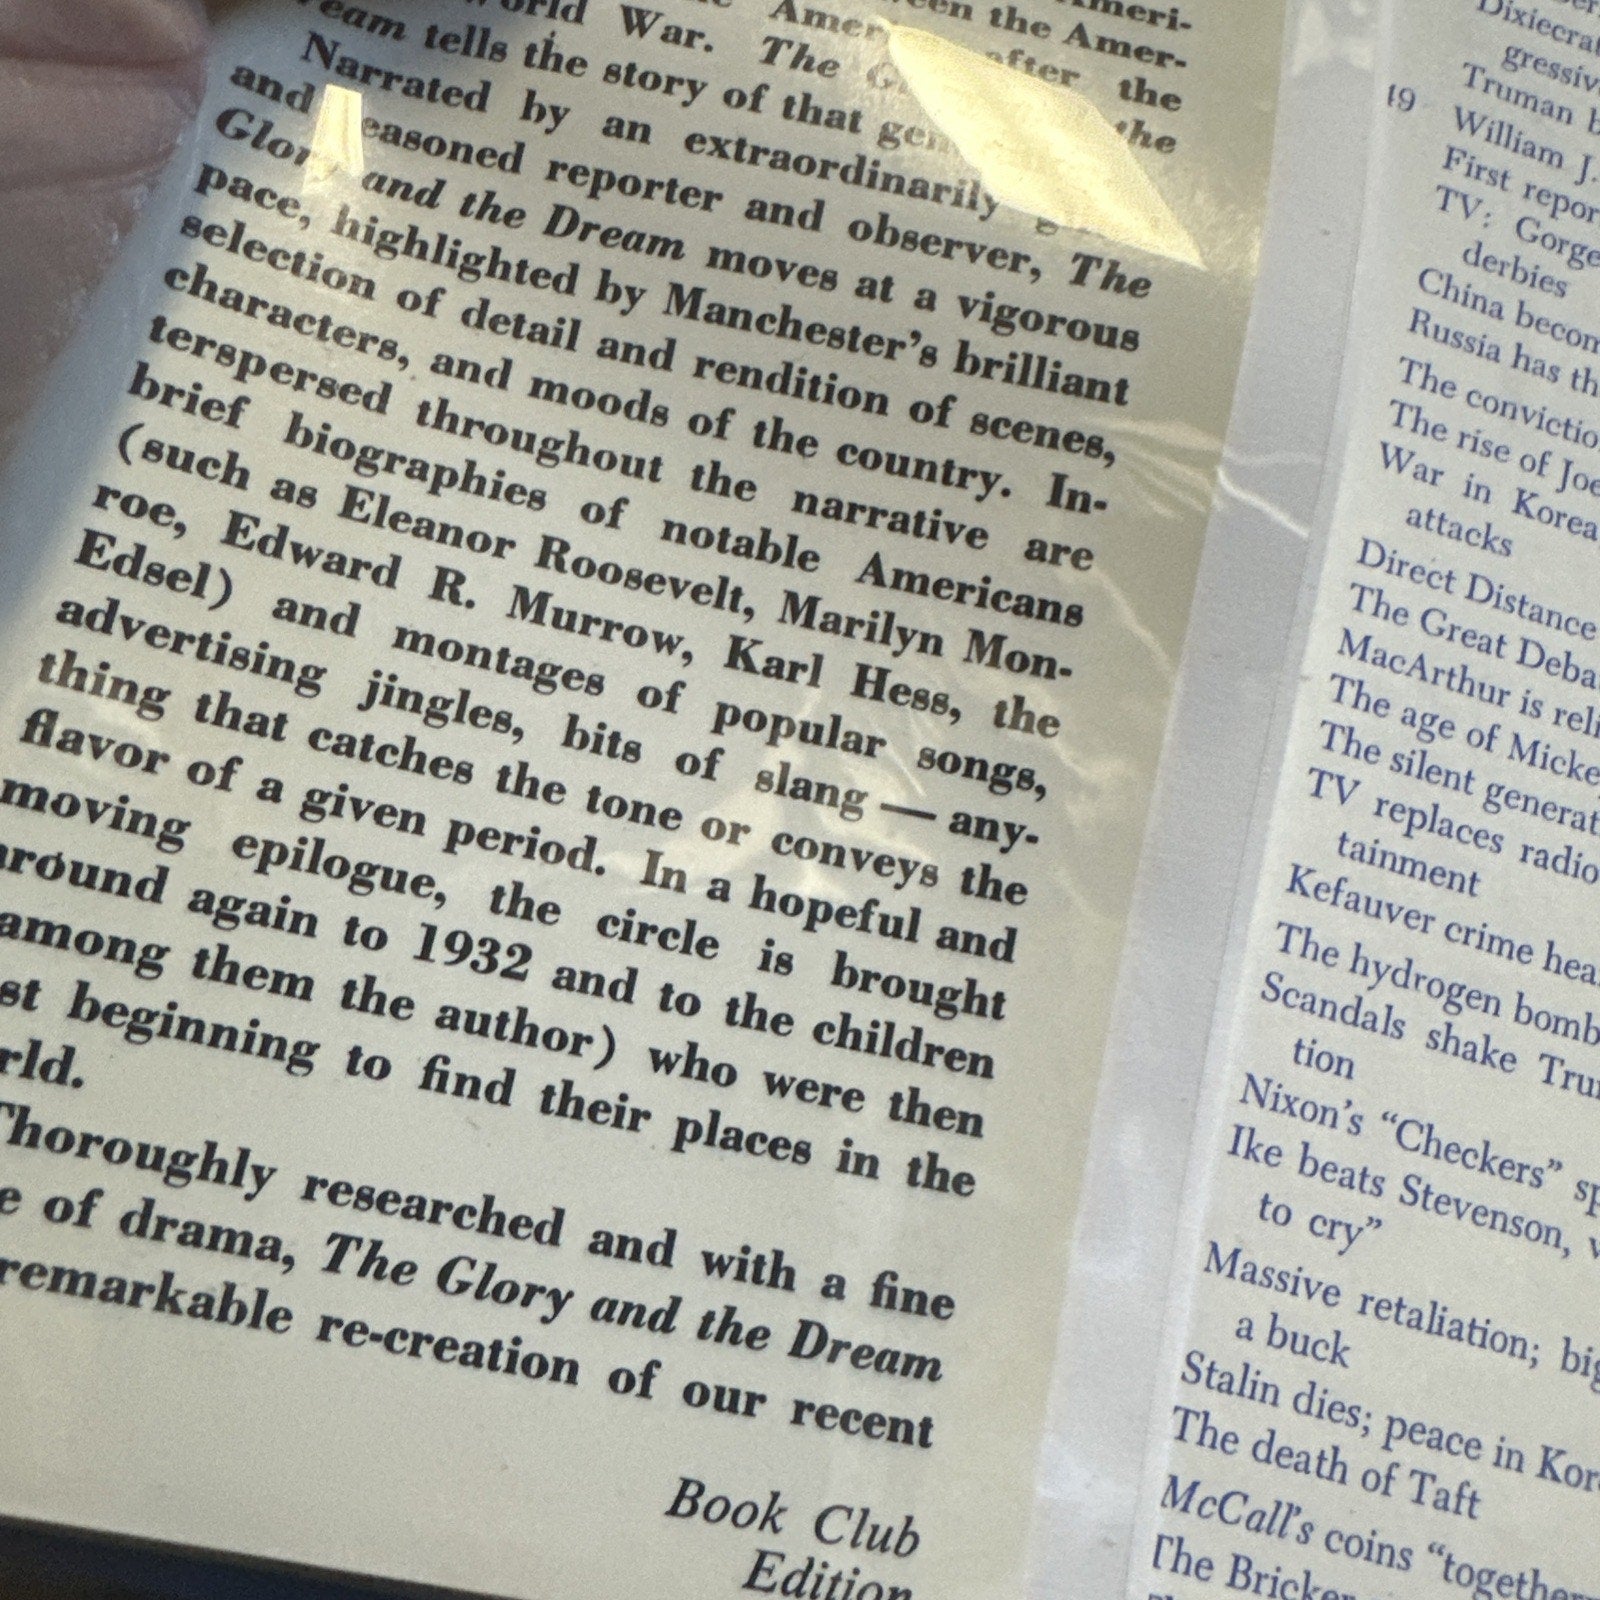 World War. The
Dream tells the story of that
Narrated by an extraordinarily
and seasoned reporter and observer, The
Glory and the Dream moves at a vigorous
pace, highlighted by Manchester's brilliant
selection of detail and rendition of scenes,
characters, and moods of the country. In-
terspersed throughout the narrative are
brief biographies of notable Americans
(such as Eleanor Roosevelt, Marilyn Mon-
roe, Edward R. Murrow, Karl Hess, the
Edsel) and montages of popular songs,
advertising jingles, bits of slang — any-
thing that catches the tone or conveys the
flavor of a given period. In a hopeful and
moving epilogue, the circle is brought
around again to 1932 and to the children
among them the author) who were then
st beginning to find their places in the
rld.
Thoroughly researched and with a fine
e of drama, The Glory and the Dream
remarkable re-creation of our recent
Book Club
Edition
Dixiecrat
gressiv
Truman b
49 William J.
First repor
TV: Gorge
derbies
China becom
Russia has th
The convictio
The rise of Joe
War in Korea
attacks
Direct Distance
The Great Deba
MacArthur is reli
The age of Micke
The silent generat
TV replaces radio
tainment
Kefauver crime hea
The hydrogen bomb
Scandals shake Tru
tion
Nixon's "Checkers" sp
Ike beats Stevenson,
to cry"
Massive retaliation; big
a buck
Stalin dies; peace in Kor
The death of Taft
McCall's coins "together
The Bricker